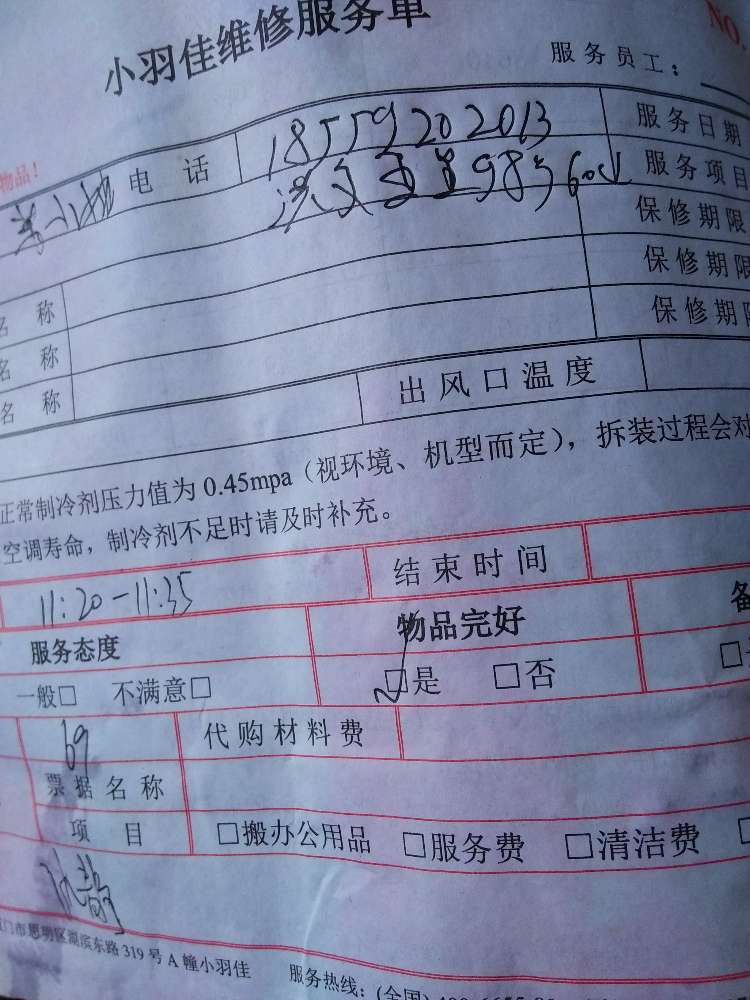 小羽佳维修服务单
NO.
服务员工：
物品！
电话 18559202013 服务日期
服务项目
保修期限
名称 保修期限
名称 保修期限
名称 出风口温度
正常制冷剂压力值为 0.45mpa（视环境、机型而定），拆装过程会对
空调寿命，制冷剂不足时请及时补充。
11:20-11:35 结束时间
服务态度 物品完好 备
一般□ 不满意□ □是 □否 □
69 代购材料费
票据名称
项目 □搬办公用品 □服务费 □清洁费
门市思明区湖滨东路 319 号 A 幢小羽佳 服务热线：(全国)